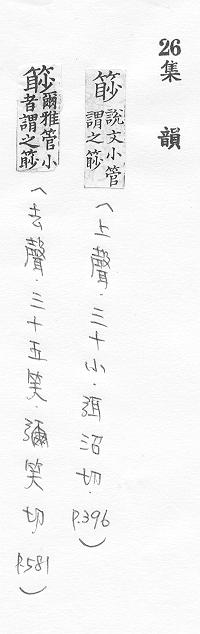 26 集韻
䈰 說文小管謂之䈰 (上聲·三十小·弭沼切·P.396)
䈰 爾雅管小者謂之䈰 (去聲·三十五笑·彌笑切·P.581)